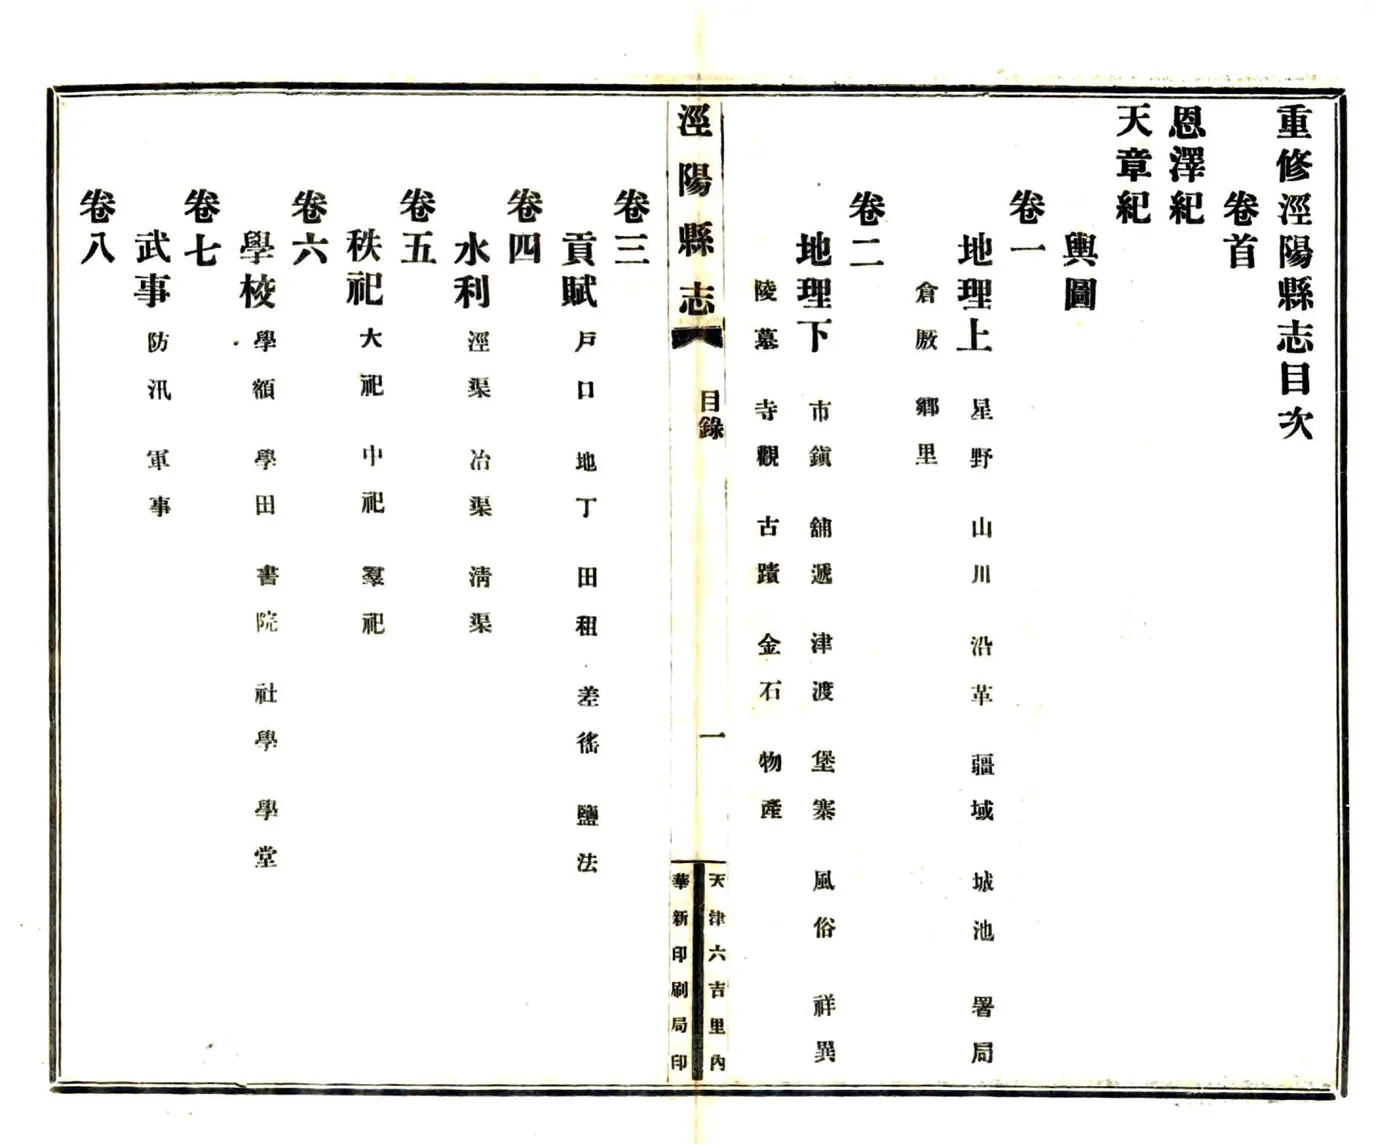 重修涇陽縣志目次
卷首
恩澤紀
天章紀
輿圖
卷一
地理上 星野 山川 沿革 疆域 城池 署局
倉厫 鄉里
卷二
地理下 市鎭 舖遞 津渡 堡寨 風俗 祥異
陵墓 寺觀 古蹟 金石 物產
涇陽縣志 目錄 一
天津六吉里內
華新印刷局印
卷三
貢賦 戶口 地丁 田租 差徭 鹽法
卷四
水利 涇渠 冶渠 淸渠
卷五
秩祀 大祀 中祀 羣祀
卷六
學校 學額 學田 書院 社學 學堂
卷七
武事 防汛 軍事
卷八